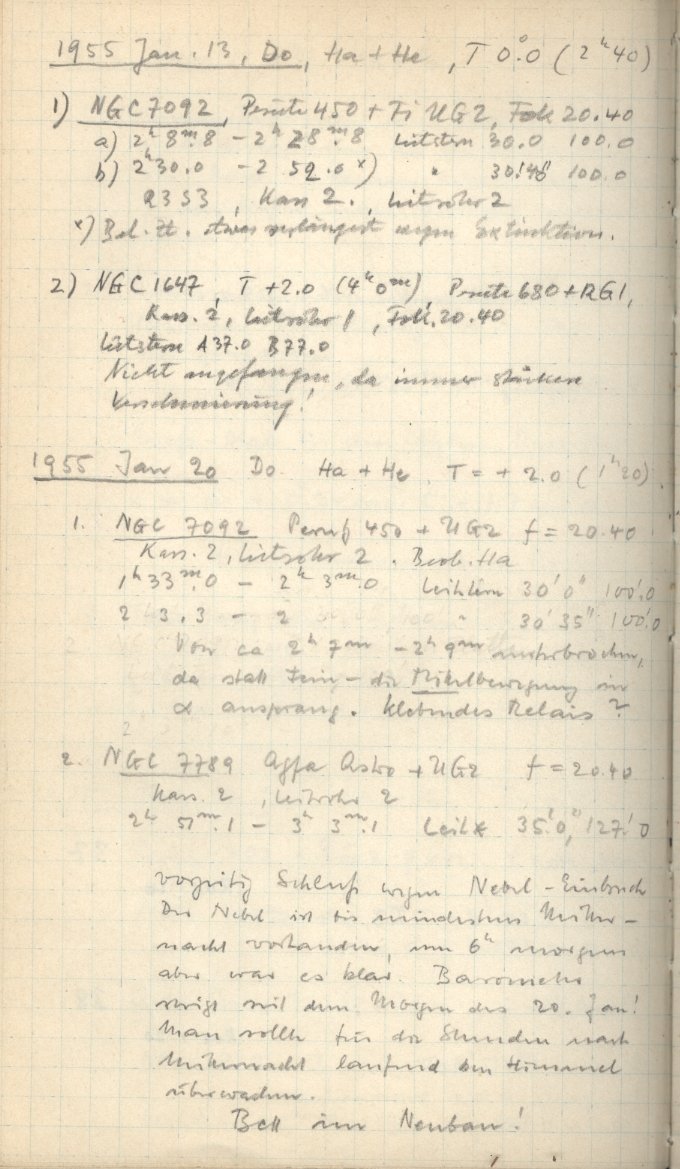 1955 Jan. 13, Do, Ha + He, T 0°.0 (2ʰ40)
1) NGC 7092, Perutz 450 + Fi UG2, Fok 20.40
a) 2ʰ8ᵐ.8 – 2ʰ28ᵐ.8 Leitstern 30.0 100.0
b) 2ʰ30.0 – 2 52.0 x) " 100.0
Kass 2., Leitrohr 2
x) Bel. Zt. etwas verlängert wegen Extinktion.
2) NGC 1647, T +2.0 (4ʰ0ᵐ) Perutz 680 + RG1,
Kass. 2, Leitrohr 1, Fok. 20.40
Leitstern A37.0 B77.0
Nicht angefangen, da immer stärkere
Verschmierung!
1955 Jan 20 Do Ha + He T = + 2.0 (1ʰ20)
1. NGC 7092 Perutz 450 + UG2 f = 20.40
Kass. 2, Leitrohr 2. Beob. Ha
1ʰ33ᵐ.0 – 2ʰ3ᵐ.0 Leitstern 30'0" 100'.0
2 3.3 – 2 " 30'35" 100'.0
Von ca 2ʰ7ᵐ – 2ʰ9ᵐ unterbrochen,
da statt Fein – die bewegung in
α ansprang. Klebendes Relais?
2. NGC 7789 Agfa Astro + UG2 f = 20.40
Kass. 2, Leitrohr 2
2ʰ 51ᵐ.1 – 3ʰ 3ᵐ.1 Leit* 35'.0, 127'.0
vorzeitig Schluß wegen Nebel-Einbruch
Der Nebel ist bis mindestens Mitter-
nacht vorhanden, um 6ʰ morgens
aber war es klar. Barometer
steigt seit dem Morgen des 20. Jan!
Man sollte für die Stunden nach
Mitternacht laufend den Himmel
überwachen.
Bett im Neubau!